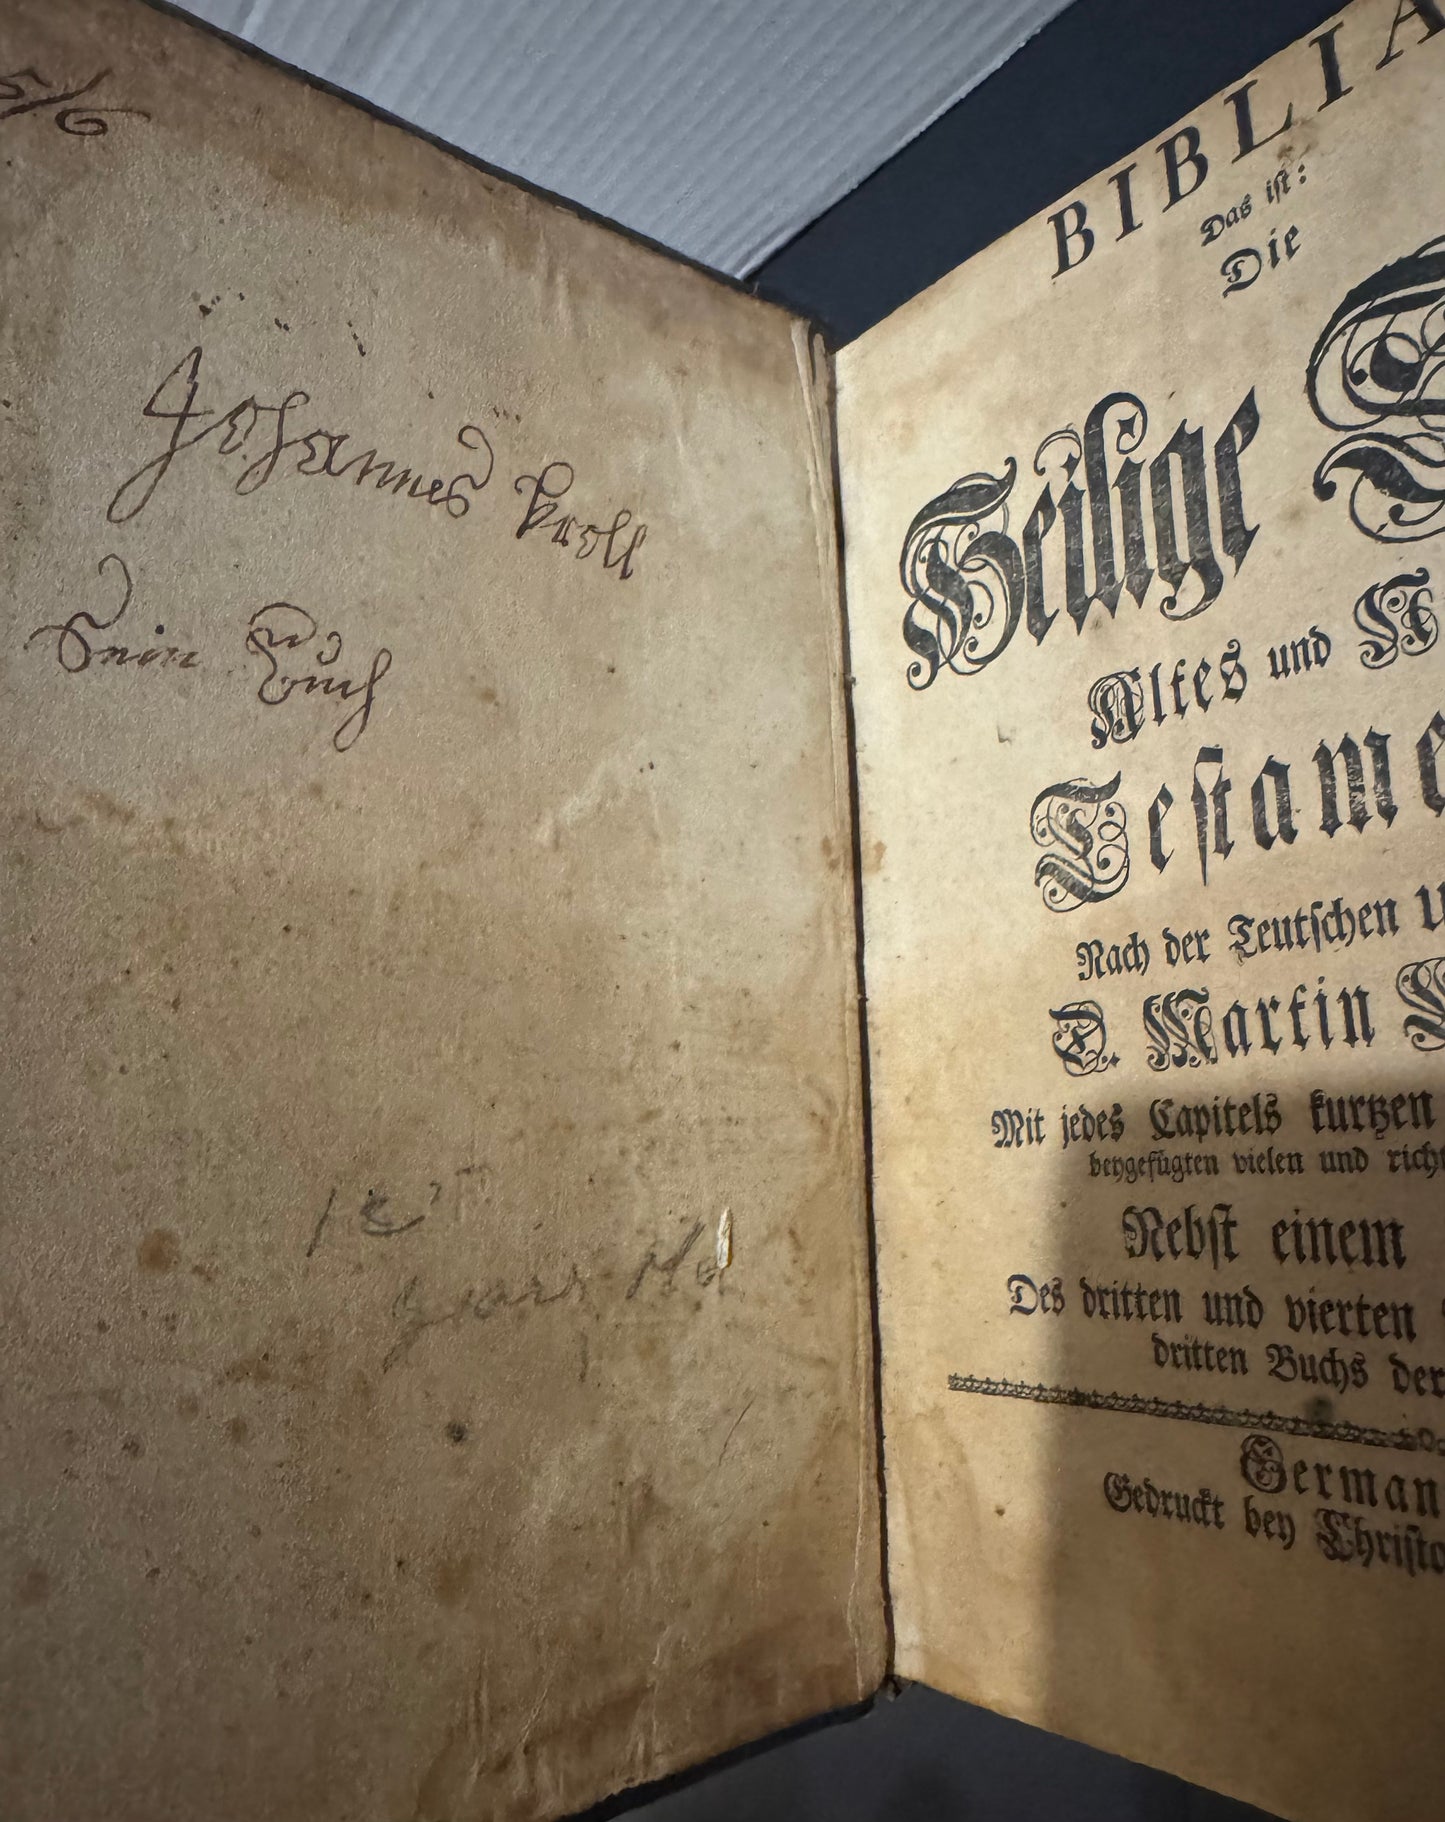 5/6
Johannes Kroll
Sein Buch
BIBLIA
Das ist:
Die
Heilige
Altes und
Testame
Nach der Teutschen U
D. Martin
Mit jedes Capitels kurtzen
beygefügten vielen und richt
Nebst einem
Des dritten und vierten
dritten Buchs der
German
Gedruckt bey Christo